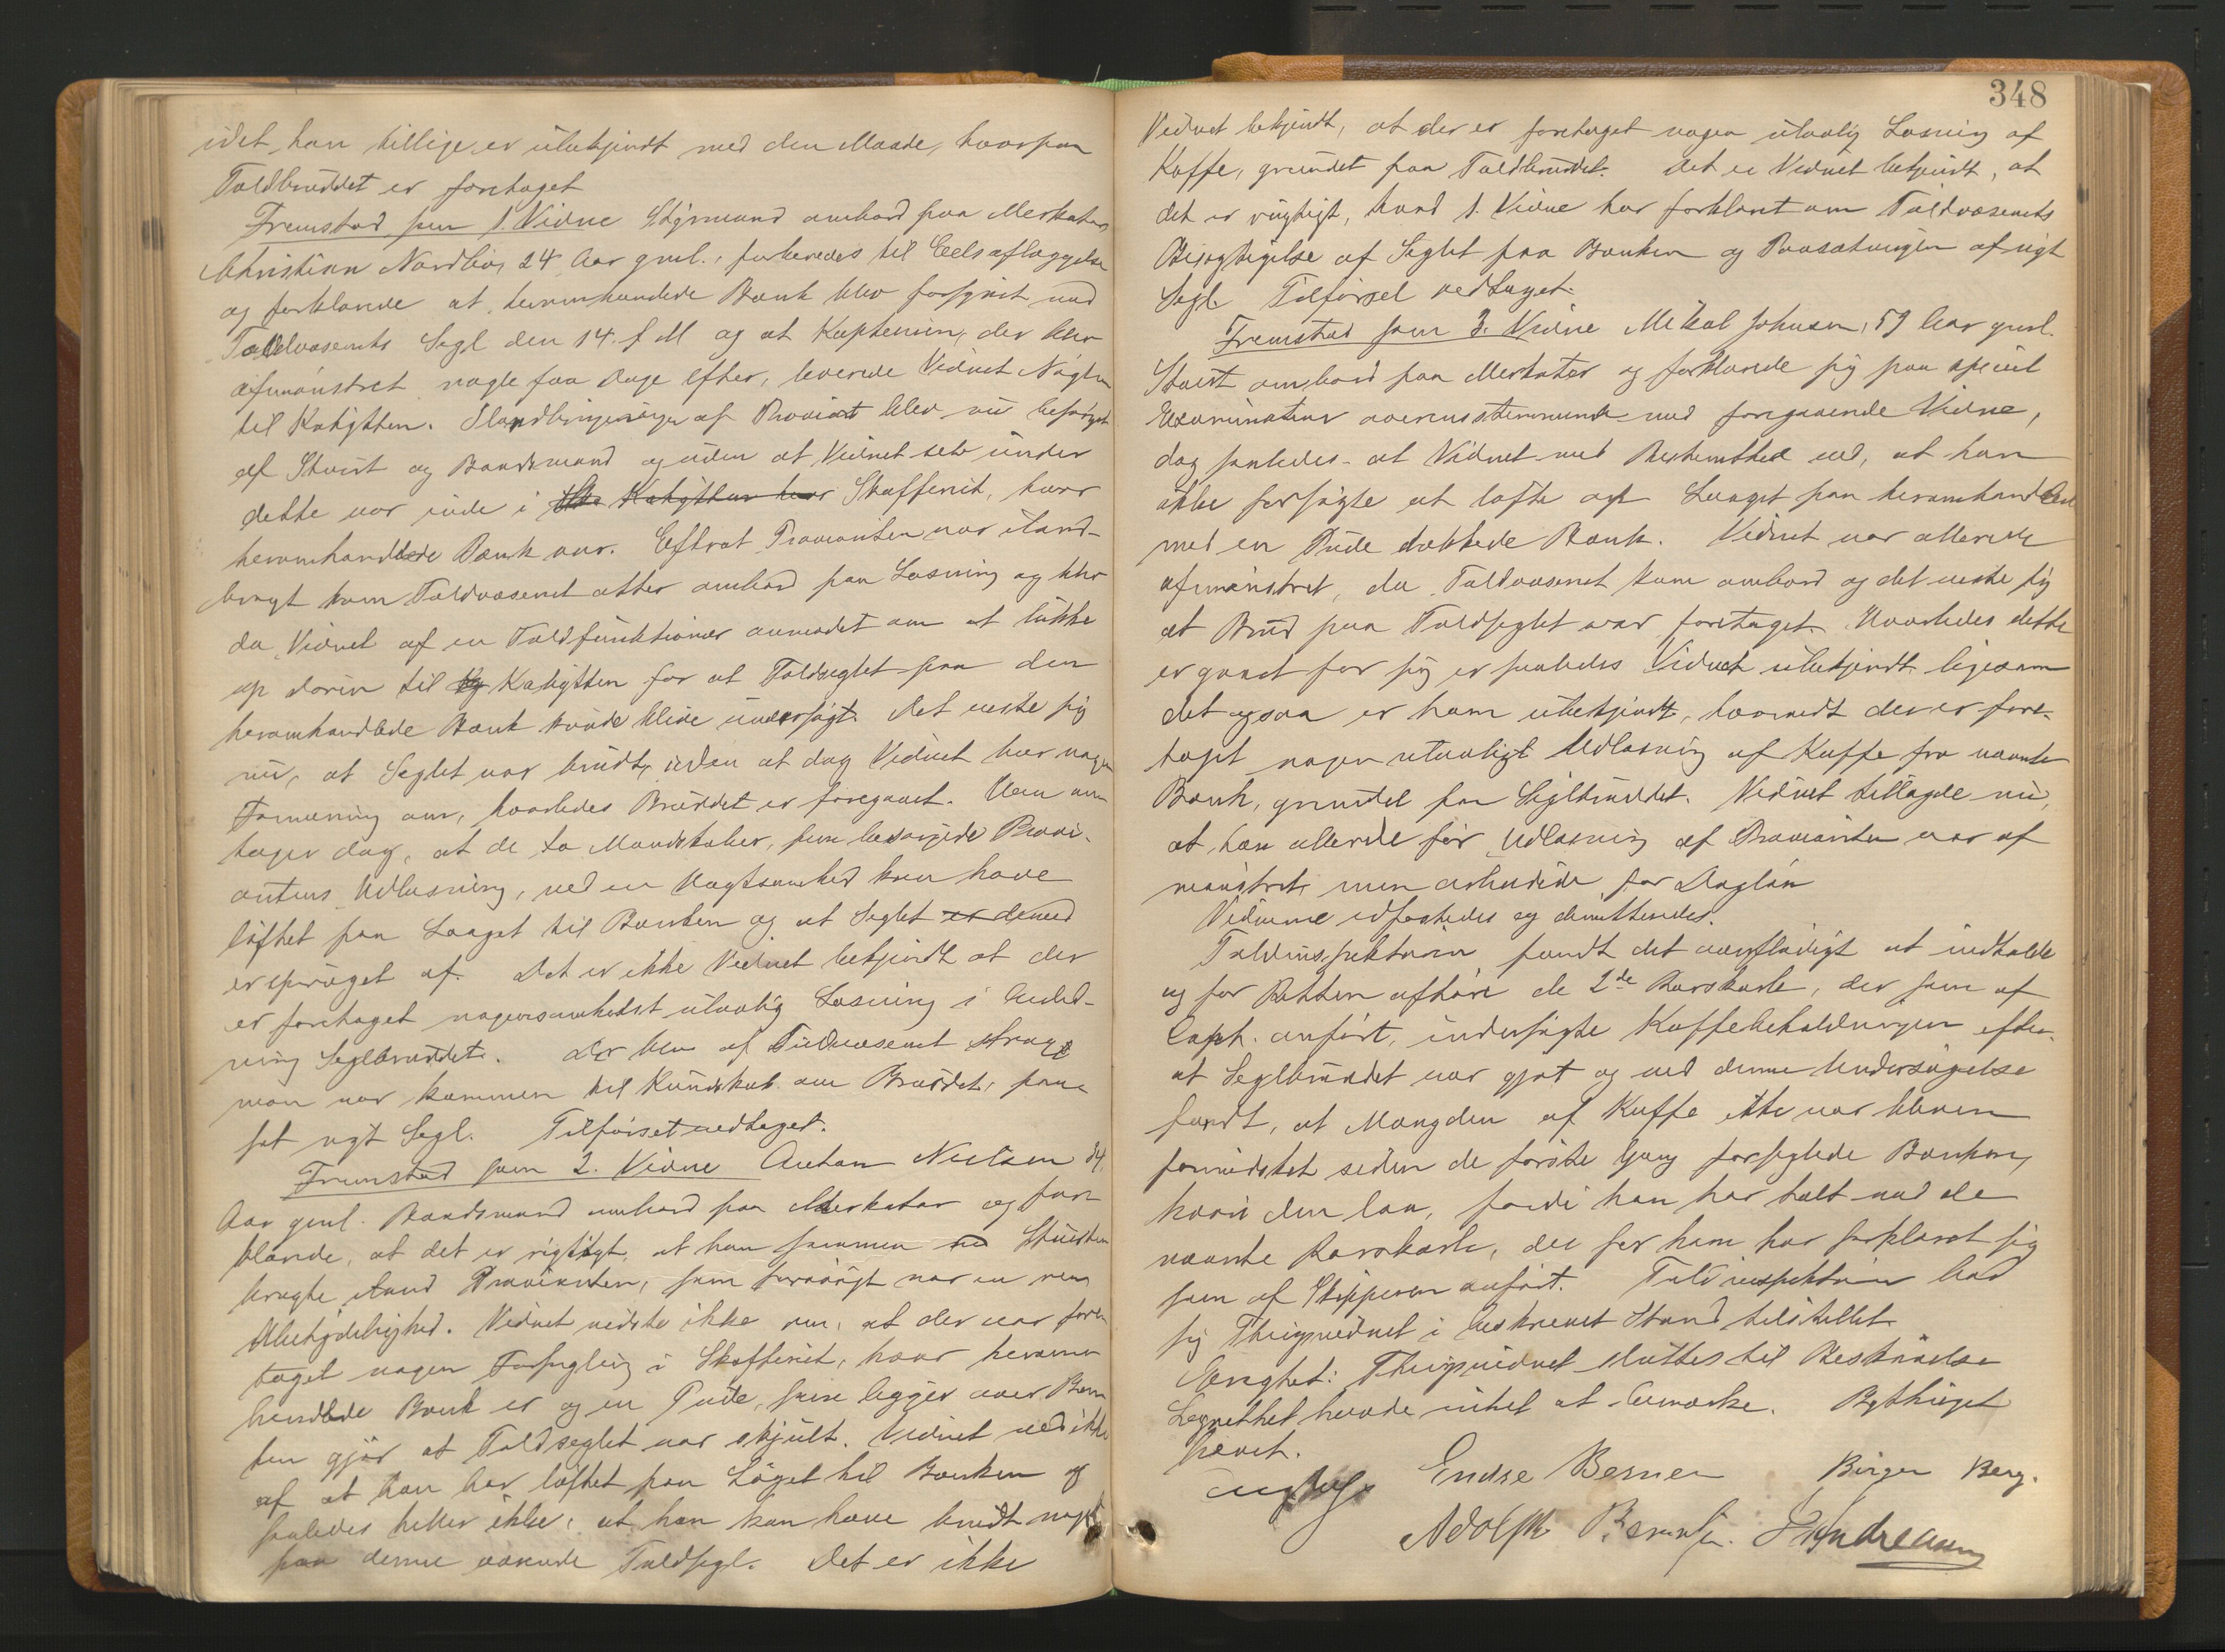 idet han tillige er ubekjendt med den Maade, hvorpaa
Toldbruddet er foretaget
Fremstod som 1. Vidne Styrmand ombord paa Merkator
Christian Nordbø, 24 Aar gml., forberedes til Eedsaflæggelse
og forklarede at heromhandlede Bænk blev forsynet med
Toldvæsenets Segl den 14. f M og at Kapteinen, der blev
afmønstret nogle faa Dage efter, leverede Vidnet Nøglen
til Kahytten. Ilandbringningen af Proviant blev nu besørget
af Stuert og Baadsmand og uden at Vidnet selv under
dette var inde i Skafferiet, hvor
heromhandlede Bænk var. Efterat Provianten var iland-
bragt kom Toldvæsenet atter ombord paa Losning og blev
da Vidnet af en Toldfunktionær anmodet om at lukke
op døren til Kahytten for at Toldseglet paa den
heromhandlede Bænk kunde blive undersøgt. Det viste sig
nu, at Seglet var brudt, uden at dog Vidnet har nogen
Formening om, hvorledes Bruddet er foregaaet. Han an-
tager dog, at de to Mandskaber, som besørgede Provi-
antens Udlosning, ved en Uagtsomhed kan have
løftet paa Laaget til Bænken og at Seglet er derved
er sprunget af. Det er ikke Vidnet bekjendt at der
er foretaget nogensomhelst ulovlig Losning i Anled-
ning Seglbruddet. Der blev af Toldvæsenet straks
man var kommen til Kundskab om Bruddet, paa-
sat nyt Segl. Tilførset vedtaget.
Fremstod som 2. Vidne Anton Nielsen 34
Aar gml. Baadsmand ombord paa Merkator og for-
klarede, at det er rigtigt, at han sammen med Stuerten
bragte iland Provianten, som forøvrigt var en ren
Ubetydelighed. Vidnet vidste ikke om, at der var fore-
taget nogen Forsegling i Skafferiet, hvor heromm-
handlede Bænk er og en Pude, som ligger over Bæn-
ken gjør at Toldseglet var skjult. Vidnet ved ikke
af at han har løftet paa Laget til Bænken og
saaledes heller ikke, at han kan have brudt noget
paa denne værende Toldsegl. Det er ikke
348
Vidnet bekjendt, at der er foretaget nogen ulovlig Losning af
Kaffe, grundet paa Toldbruddet. Det er Vidnet bekjendt, at
det er rigtigt, hvad 1. Vidne har forklaret om Toldvæsenets
Besigtigelse af Seglet paa Bænken og Paasætningen af nyt
Segl. Tilførsel vedtaget.
Fremstod som 3. Vidne Mikal Johnsen, 59 Aar gml.
Stuert ombord paa Merkator og forklarede sig paa speciel
Examination overensstemmende med foregaaende Vidne,
dog saaledes at Vidnet med Bestemthed ved, at han
ikke forsøgte at løfte op Laaget paa heromhandlede
med en Pude dækkede Bænk. Vidnet var allerede
afmønstret, da Toldvæsenet kom ombord og det viste sig
at Brud paa Toldseglet var foretaget. Hvorledes dette
er gaaet for sig er saaledes Vidnet ubekjendt ligesom
det ogsaa er ham ubekjendt, hvorvidt der er fore-
taget nogen ulovligt Udlosning af Kaffe fra nævnte
Bænk, grundet paa Seglbruddet. Vidnet tillagde nu,
at han allerede før Udlosning af Provianten var af
mønstret, men arbeidede for Dagløn
Vidnerne edfæstedes og demitteredes.
Toldinspektøren fandt det overflødigt at indkalde
og for Retten afhøre de 2de Karskarle, der som af
Capt. anført, undersøgte Kaffebeholdningen efter-
at Seglbruddet var gjort og ved denne Undersøgelse
fandt, at Mængden af Kaffe ikke var bleven
formindsket siden de første Gang forseglede Bænken,
hvori den laa, fordi han har talt med de
nævnte Karskarle, der for ham har forklaret sig
som af Skipperen anført. Toldinspektøren bad
sig Thingsvidnet i beskrevet Stand tilstillet
Eragtet: Thingsvidnet sluttes til Beskrivelse
Lagrettet havde intet at bemærke. Bythinget
hævet.
Endre Berner Birger Berg.
Adolph Berntsen. Andreasen